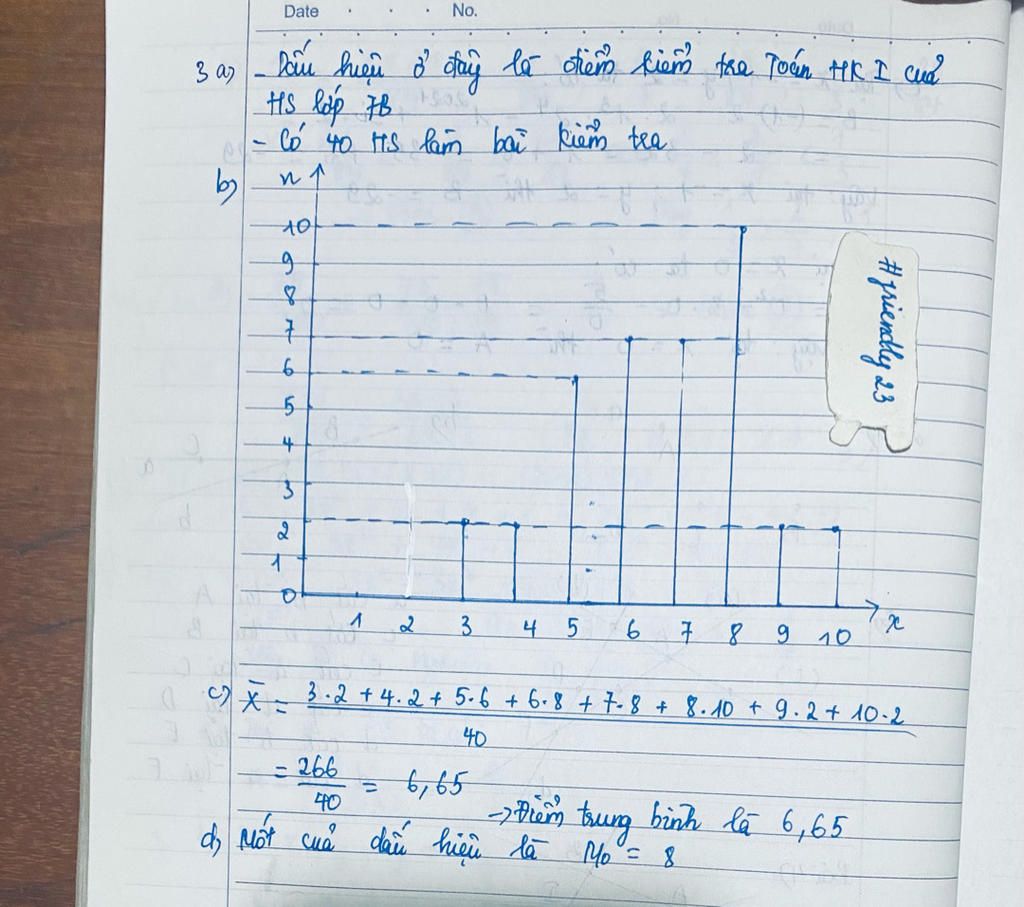 Date No.
3 a) - Dấu hiệu ở đây là điểm kiểm tra Toán HK I của
HS lớp 7B
- Có 40 HS làm bài kiểm tra
b) n
10
9
8
7
6
5
4
3
2
1
0
1 2 3 4 5 6 7 8 9 10 x
#friendly23
c) X̄ = 3.2 + 4.2 + 5.6 + 6.8 + 7.8 + 8.10 + 9.2 + 10.2
40
= 266/40 = 6,65
→ Điểm trung bình là 6,65
d) Mốt của dấu hiệu là Mo = 8